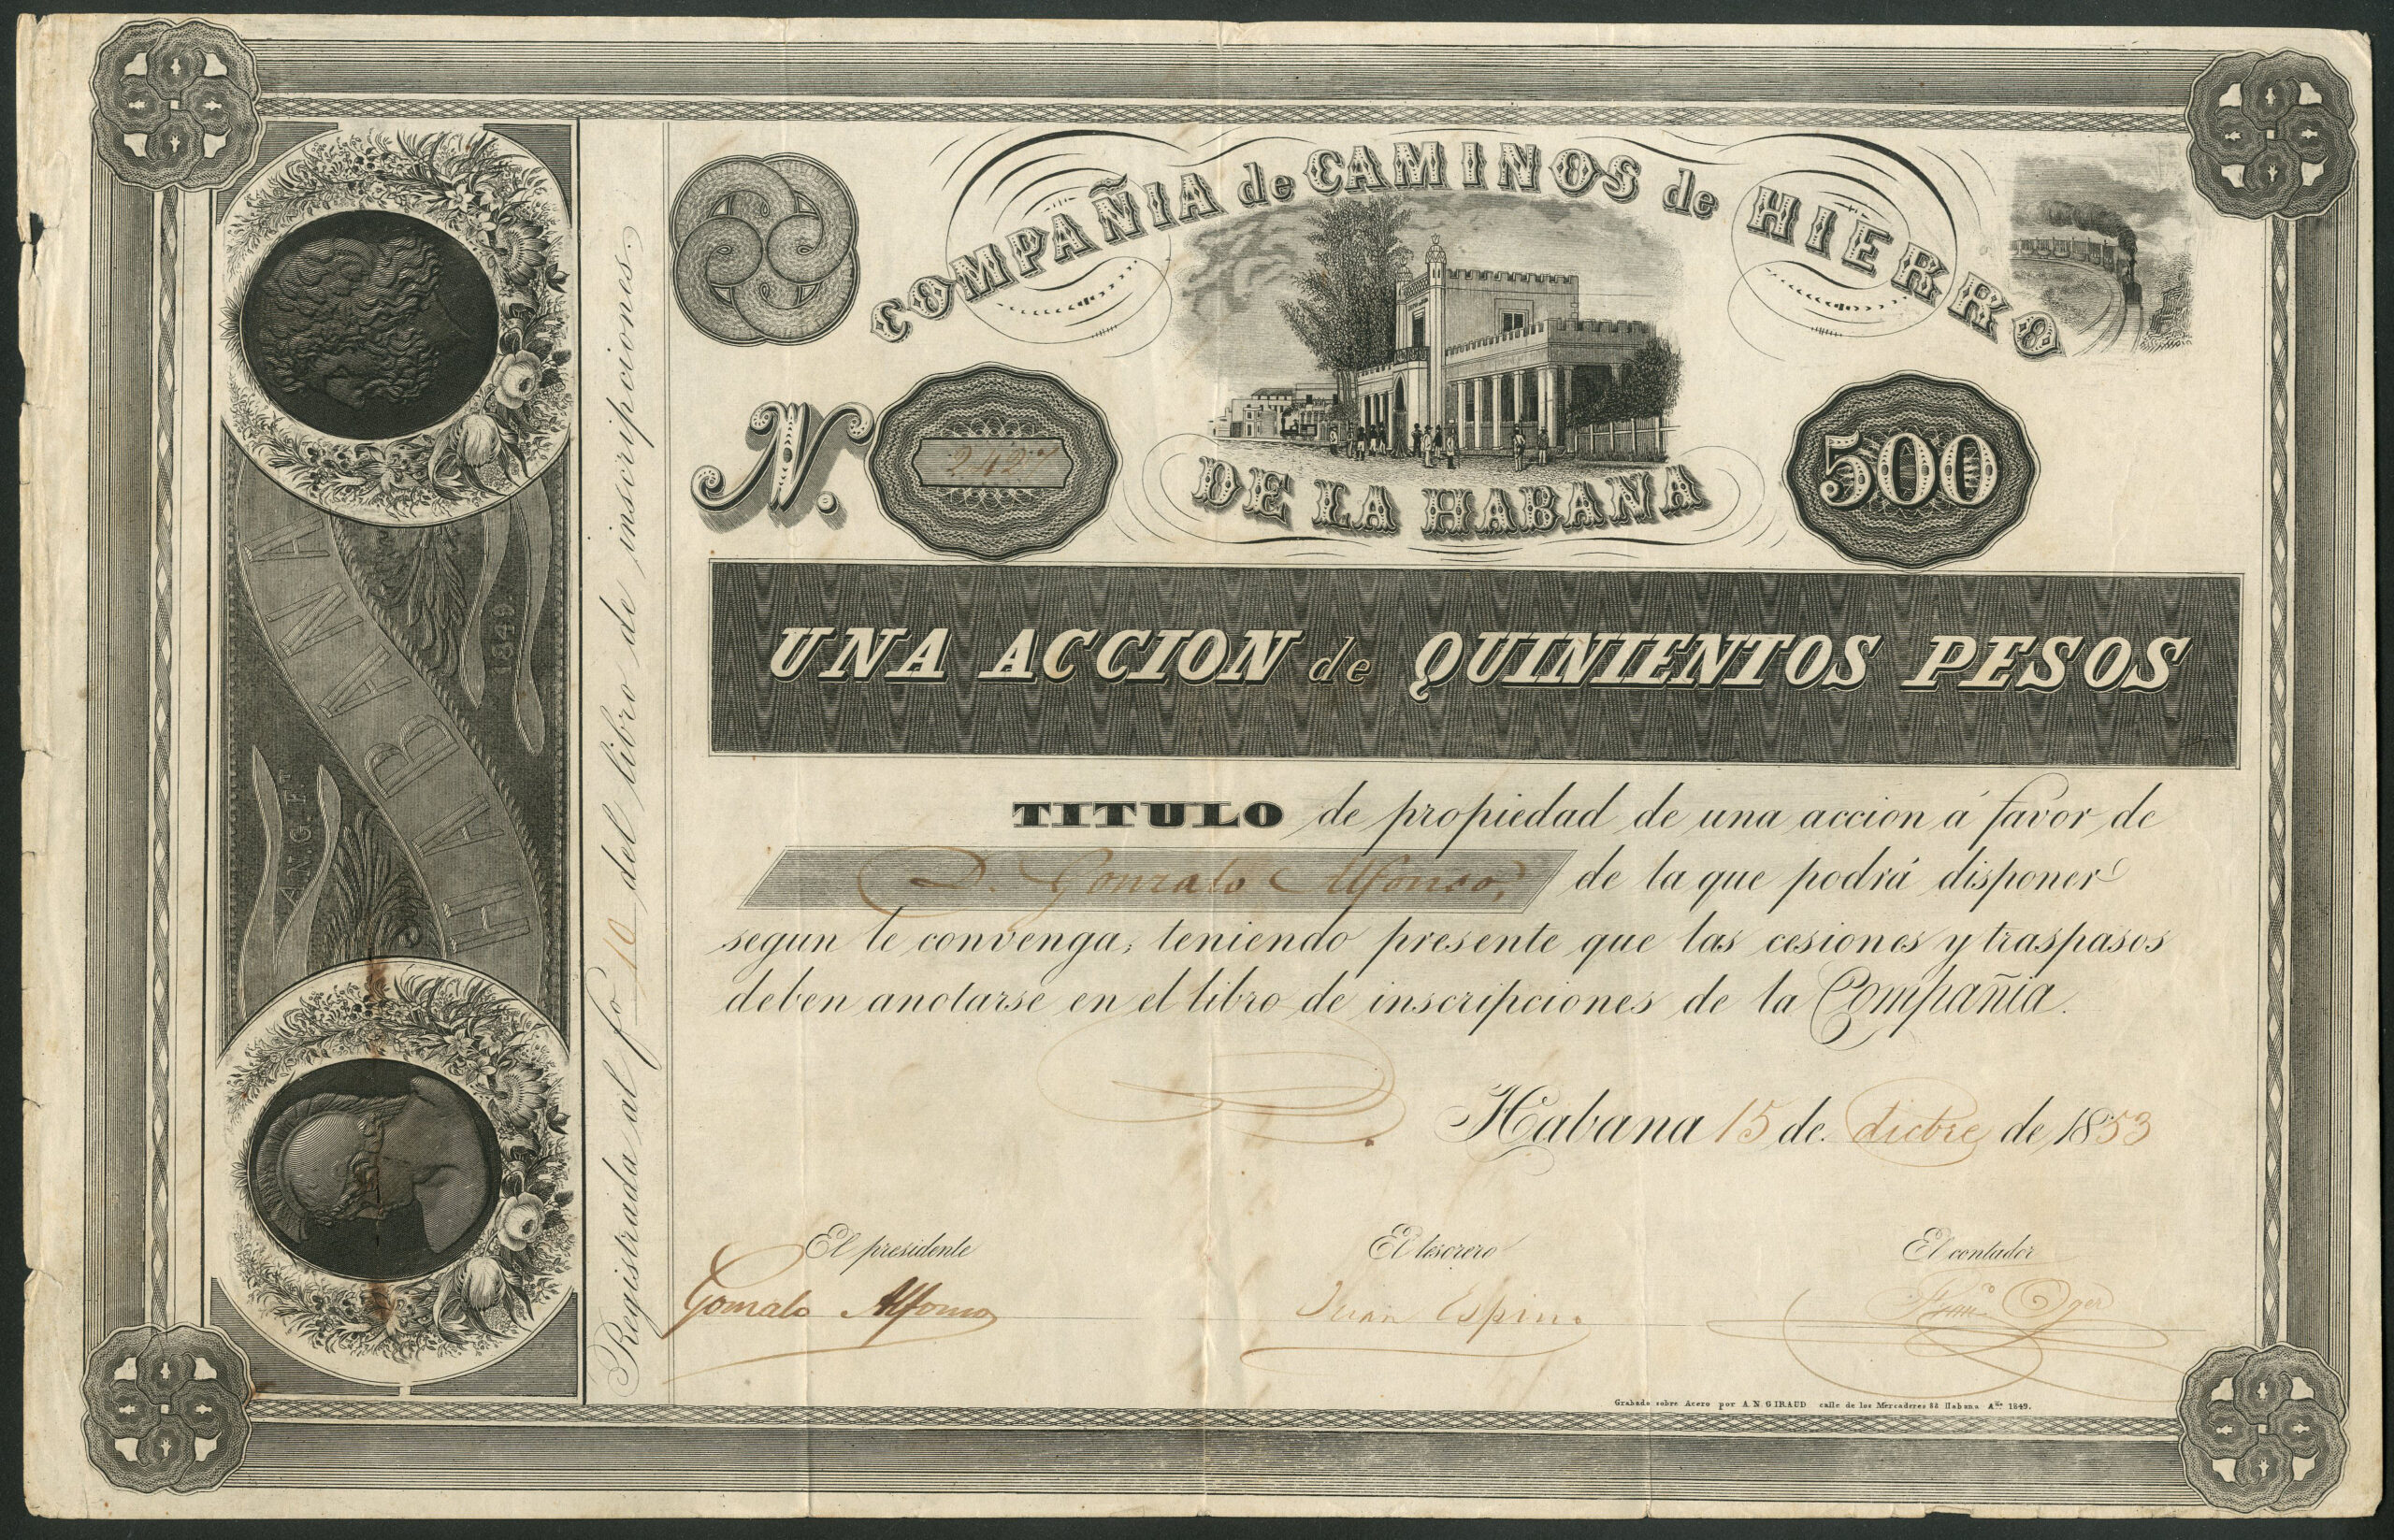 COMPAÑIA de CAMINOS de HIERRO
DE LA HABANA
N. 2427
500
UNA ACCION de QUINIENTOS PESOS
TITULO de propiedad de una accion á favor de
D. Gonzalo Alfonso, de la que podrá disponer
segun le convenga, teniendo presente que las cesiones y traspasos
deben anotarse en el libro de inscripciones de la Compañia.
Habana 15 de dicbre de 1853
El presidente
Gonzalo Alfonso
El tesorero
Juan Espino
El contador
Oger
Grabado sobre Acero por A. N. GIRAUD calle de los Mercaderes 88 Habana Año 1849.
Registrada al fo 10 del libro de inscripciones.
HABANA
1849
A.N.G. FT